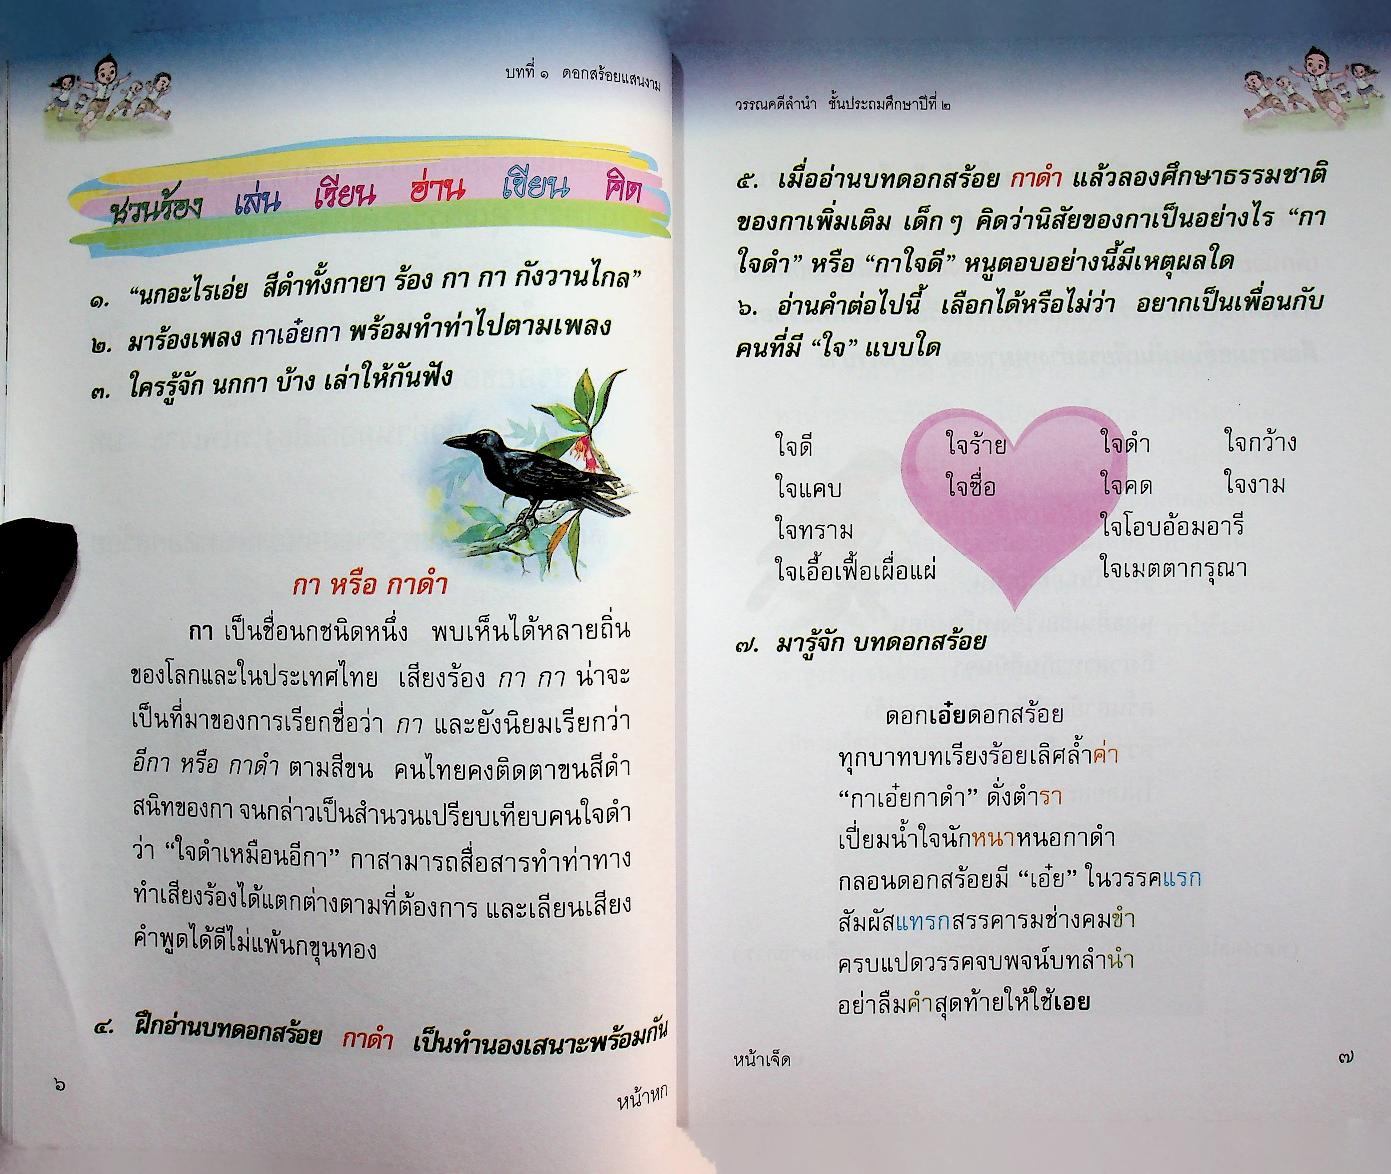 บทที่ ๑ ดอกสร้อยแสนงาม
ชวนร้อง เล่น เรียน อ่าน เขียน คิด
๑. “นกอะไรเอ่ย สีดำทั้งกายา ร้อง กา กา กังวานไกล”
๒. มาร้องเพลง กาเอ๋ยกา พร้อมทำท่าไปตามเพลง
๓. ใครรู้จัก นกกา บ้าง เล่าให้กันฟัง
กา หรือ กาดำ
กา เป็นชื่อนกชนิดหนึ่ง พบเห็นได้หลายถิ่น
ของโลกและในประเทศไทย เสียงร้อง กา กา น่าจะ
เป็นที่มาของการเรียกชื่อว่า กา และยังนิยมเรียกว่า
อีกา หรือ กาดำ ตามสีขน คนไทยคงติดตาขนสีดำ
สนิทของกา จนกล่าวเป็นสำนวนเปรียบเทียบคนใจดำ
ว่า “ใจดำเหมือนอีกา” กาสามารถสื่อสารทำท่าทาง
ทำเสียงร้องได้แตกต่างตามที่ต้องการ และเลียนเสียง
คำพูดได้ดีไม่แพ้นกขุนทอง
๔. ฝึกอ่านบทดอกสร้อย กาดำ เป็นทำนองเสนาะพร้อมกัน
๖
หน้าหก
วรรณคดีลำนำ ชั้นประถมศึกษาปีที่ ๒
๕. เมื่ออ่านบทดอกสร้อย กาดำ แล้วลองศึกษาธรรมชาติ
ของกาเพิ่มเติม เด็ก ๆ คิดว่านิสัยของกาเป็นอย่างไร “กา
ใจดำ” หรือ “กาใจดี” หนูตอบอย่างนี้มีเหตุผลใด
๖. อ่านคำต่อไปนี้ เลือกได้หรือไม่ว่า อยากเป็นเพื่อนกับ
คนที่มี “ใจ” แบบใด
ใจดี ใจร้าย ใจดำ ใจกว้าง
ใจแคบ ใจซื่อ ใจคด ใจงาม
ใจทราม ใจโอบอ้อมอารี
ใจเอื้อเฟื้อเผื่อแผ่ ใจเมตตากรุณา
๗. มารู้จัก บทดอกสร้อย
ดอกเอ๋ยดอกสร้อย
ทุกบาทบทเรียงร้อยเลิศล้ำค่า
“กาเอ๋ยกาดำ” ดั่งตำรา
เปี่ยมน้ำใจนักหนาหนอกาดำ
กลอนดอกสร้อยมี “เอ๋ย” ในวรรคแรก
สัมผัสแทรกสรรคารมช่างคมขำ
ครบแปดวรรคจบพจน์บทลำนำ
อย่าลืมคำสุดท้ายให้ใช้เอย
หน้าเจ็ด
๗